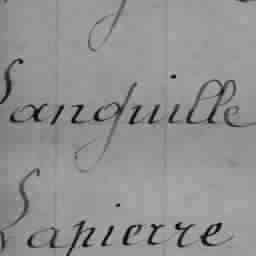 Languille
Lapierre